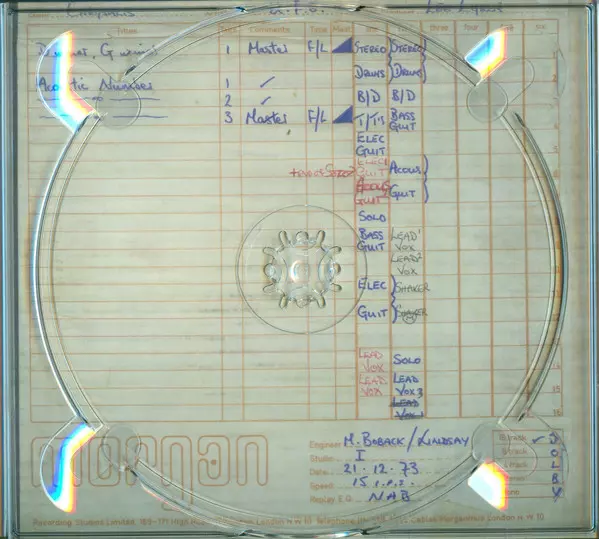 Chrysalis U.F.O.
Title Comments Time Three Four
Master F/L STEREO STEREO
DRUMS DRUMS
Acoustic Numbers 1 ✓
2 ✓ B/D B/D
3 Master F/L T/T's BASS GUIT
ELEC GUIT
ELEC GUIT ACOUS
ACOUS GUIT GUIT
SOLO
BASS GUIT LEAD 1 VOX
LEAD 2 VOX
ELEC SHAKER
GUIT SHAKER
LEAD VOX SOLO 14
LEAD VOX LEAD VOX 3 15
LEAD VOX 16
morgan
Engineer M. BOBACK / LINDSAY
Studio I
Date 21.12.73
Speed 15 i.p.s.
Replay E.Q. NAB
Recording Studios Limited, 169-171 High Road London N W 10 Telephone Cables Morganmus London N W 10